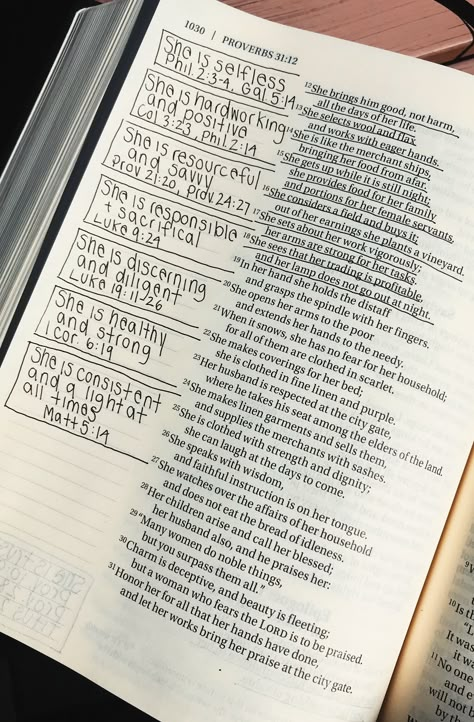 1030 | PROVERBS 31:12
She is selfless
Phil. 2:3-4, Gal 5:14
She is hardworking
and positive
Col 3:23, Phil 2:14
She is resourceful
and savvy
Prov 21:20, Prov 24:27
She is responsible
+ sacrifical
Luke 9:24
She is discerning
and diligent
Luke 19:11-26
She is healthy
and strong
1 Cor. 6:19
She is consistent
and a light at
all times
Matt 5:14
12 She brings him good, not harm,
all the days of her life.
13 She selects wool and flax
and works with eager hands.
14 She is like the merchant ships,
bringing her food from afar.
15 She gets up while it is still night;
she provides food for her family
and portions for her female servants.
16 She considers a field and buys it;
out of her earnings she plants a vineyard.
17 She sets about her work vigorously;
her arms are strong for her tasks.
18 She sees that her trading is profitable,
and her lamp does not go out at night.
19 In her hand she holds the distaff
and grasps the spindle with her fingers.
20 She opens her arms to the poor
and extends her hands to the needy.
21 When it snows, she has no fear for her household;
for all of them are clothed in scarlet.
22 She makes coverings for her bed;
she is clothed in fine linen and purple.
23 Her husband is respected at the city gate,
where he takes his seat among the elders of the land.
24 She makes linen garments and sells them,
and supplies the merchants with sashes.
25 She is clothed with strength and dignity;
she can laugh at the days to come.
26 She speaks with wisdom,
and faithful instruction is on her tongue.
27 She watches over the affairs of her household
and does not eat the bread of idleness.
28 Her children arise and call her blessed;
her husband also, and he praises her:
29 "Many women do noble things,
but you surpass them all."
30 Charm is deceptive, and beauty is fleeting;
but a woman who fears the LORD is to be praised.
31 Honor her for all that her hands have done,
and let her works bring her praise at the city gate.
10 Is th
It was
it w
11 No one
and e
will not b